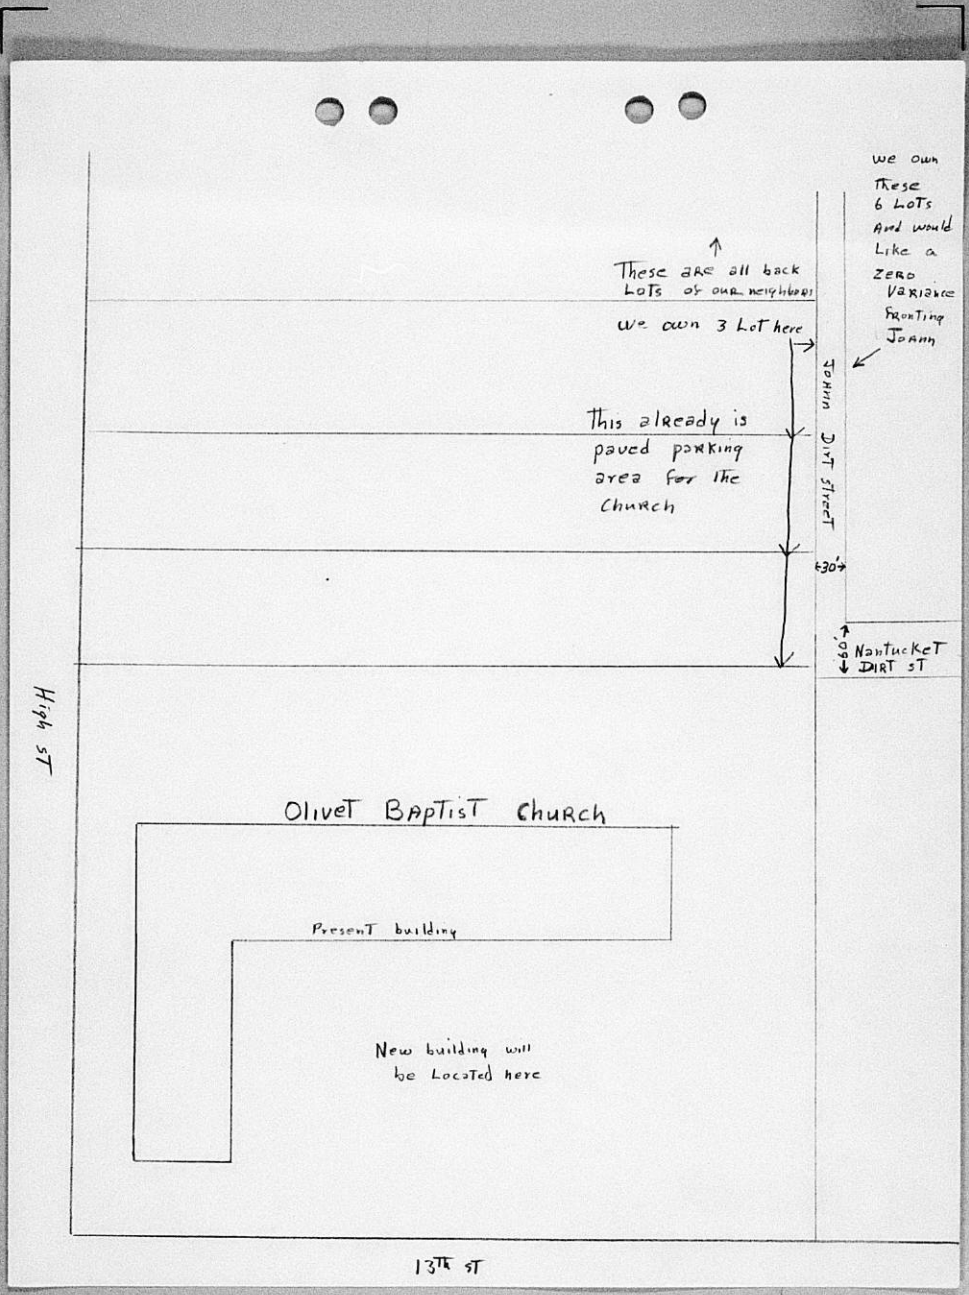 we own
These
6 LoTs
And would
Like a
ZERO
Variance
fronting
JoAnn
These are all back
LoTs of our neighbors
we own 3 Lot here
This already is
paved parking
area for the
Church
JoAnn DirT street
30'
60'
NanTuckeT
DIRT sT
High sT
OliveT BApTisT Church
PresenT building
New building will
be LocaTed here
13Th sT